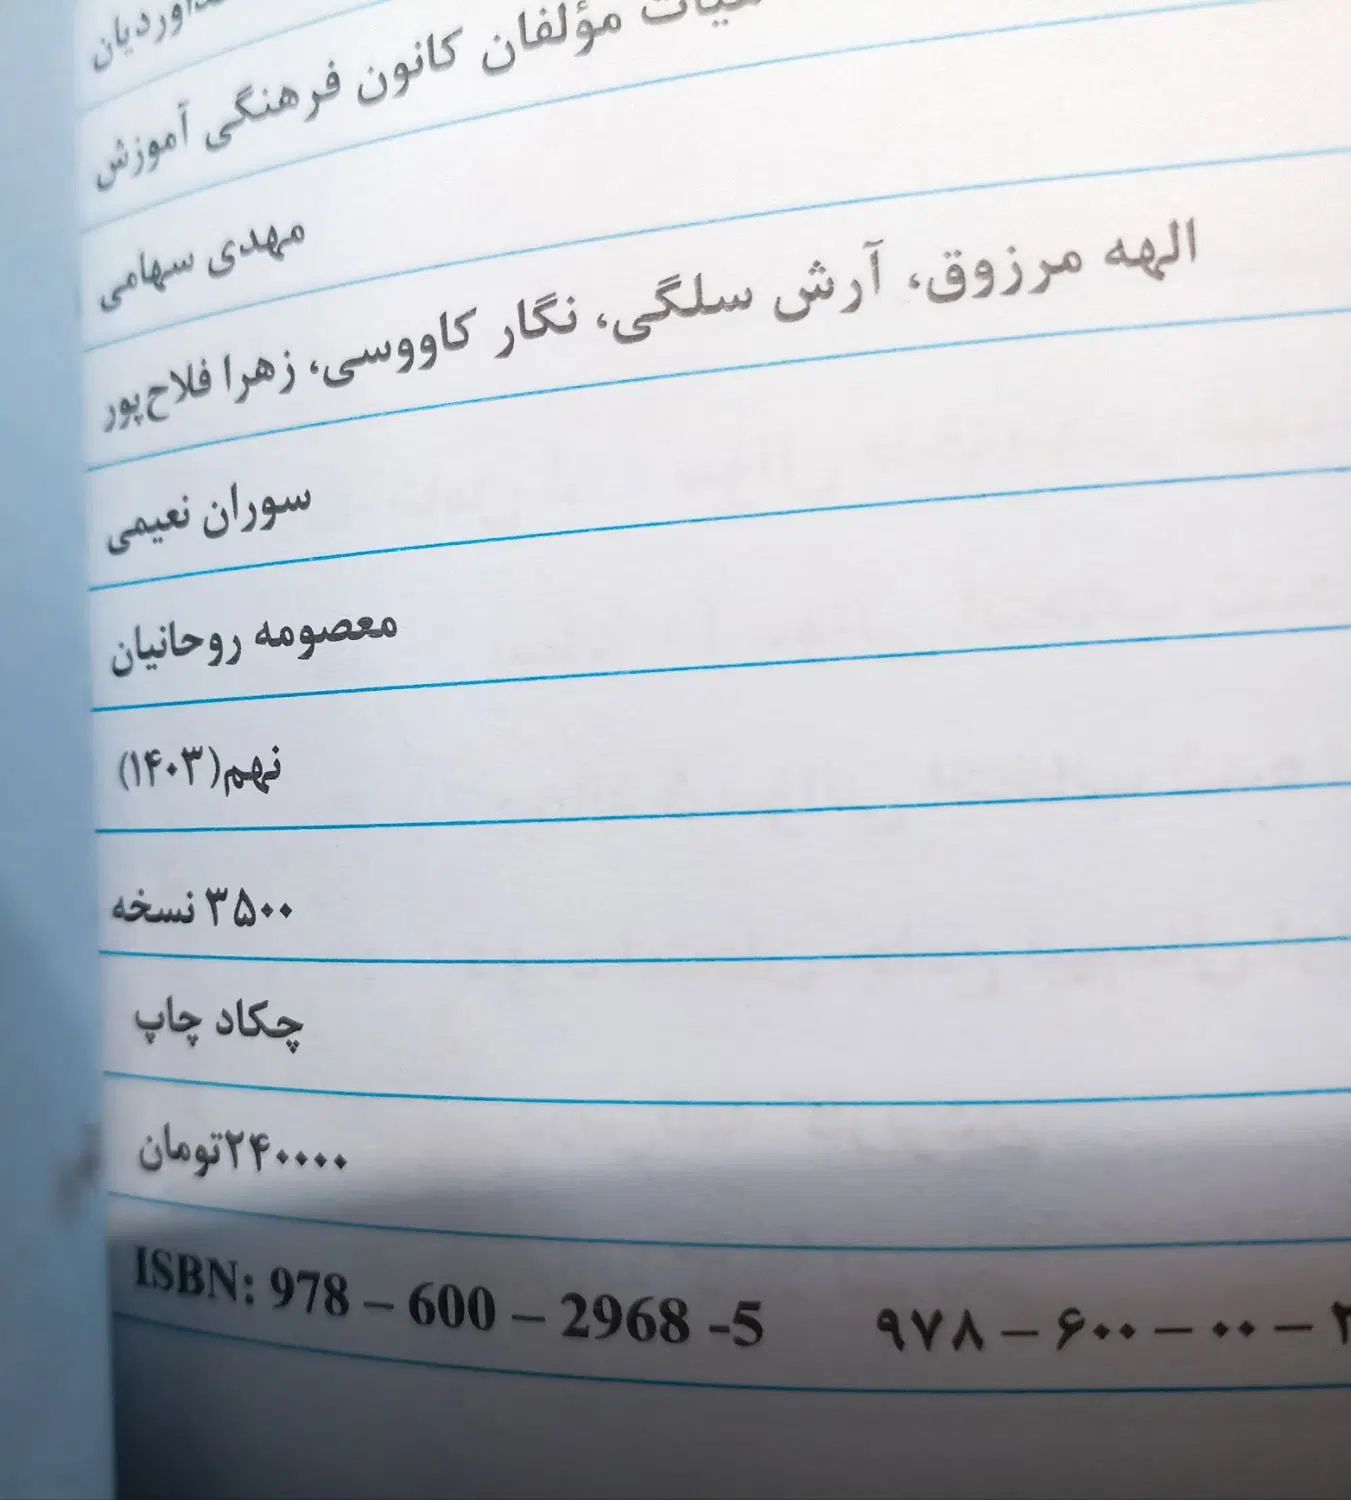 مؤلفان کانون فرهنگی آموزش
مهدی سهامی
الهه مرزوق، آرش سلگی، نگار کاووسی، زهرا فلاح‌پور
سوران نعیمی
معصومه روحانیان
نهم(۱۴۰۳)
۳۵۰۰ نسخه
چکاد چاپ
۲۴۰۰۰۰تومان
ISBN: 978 – 600 – 2968 -5 ۹۷۸ – ۶۰۰ – ۰۰ –